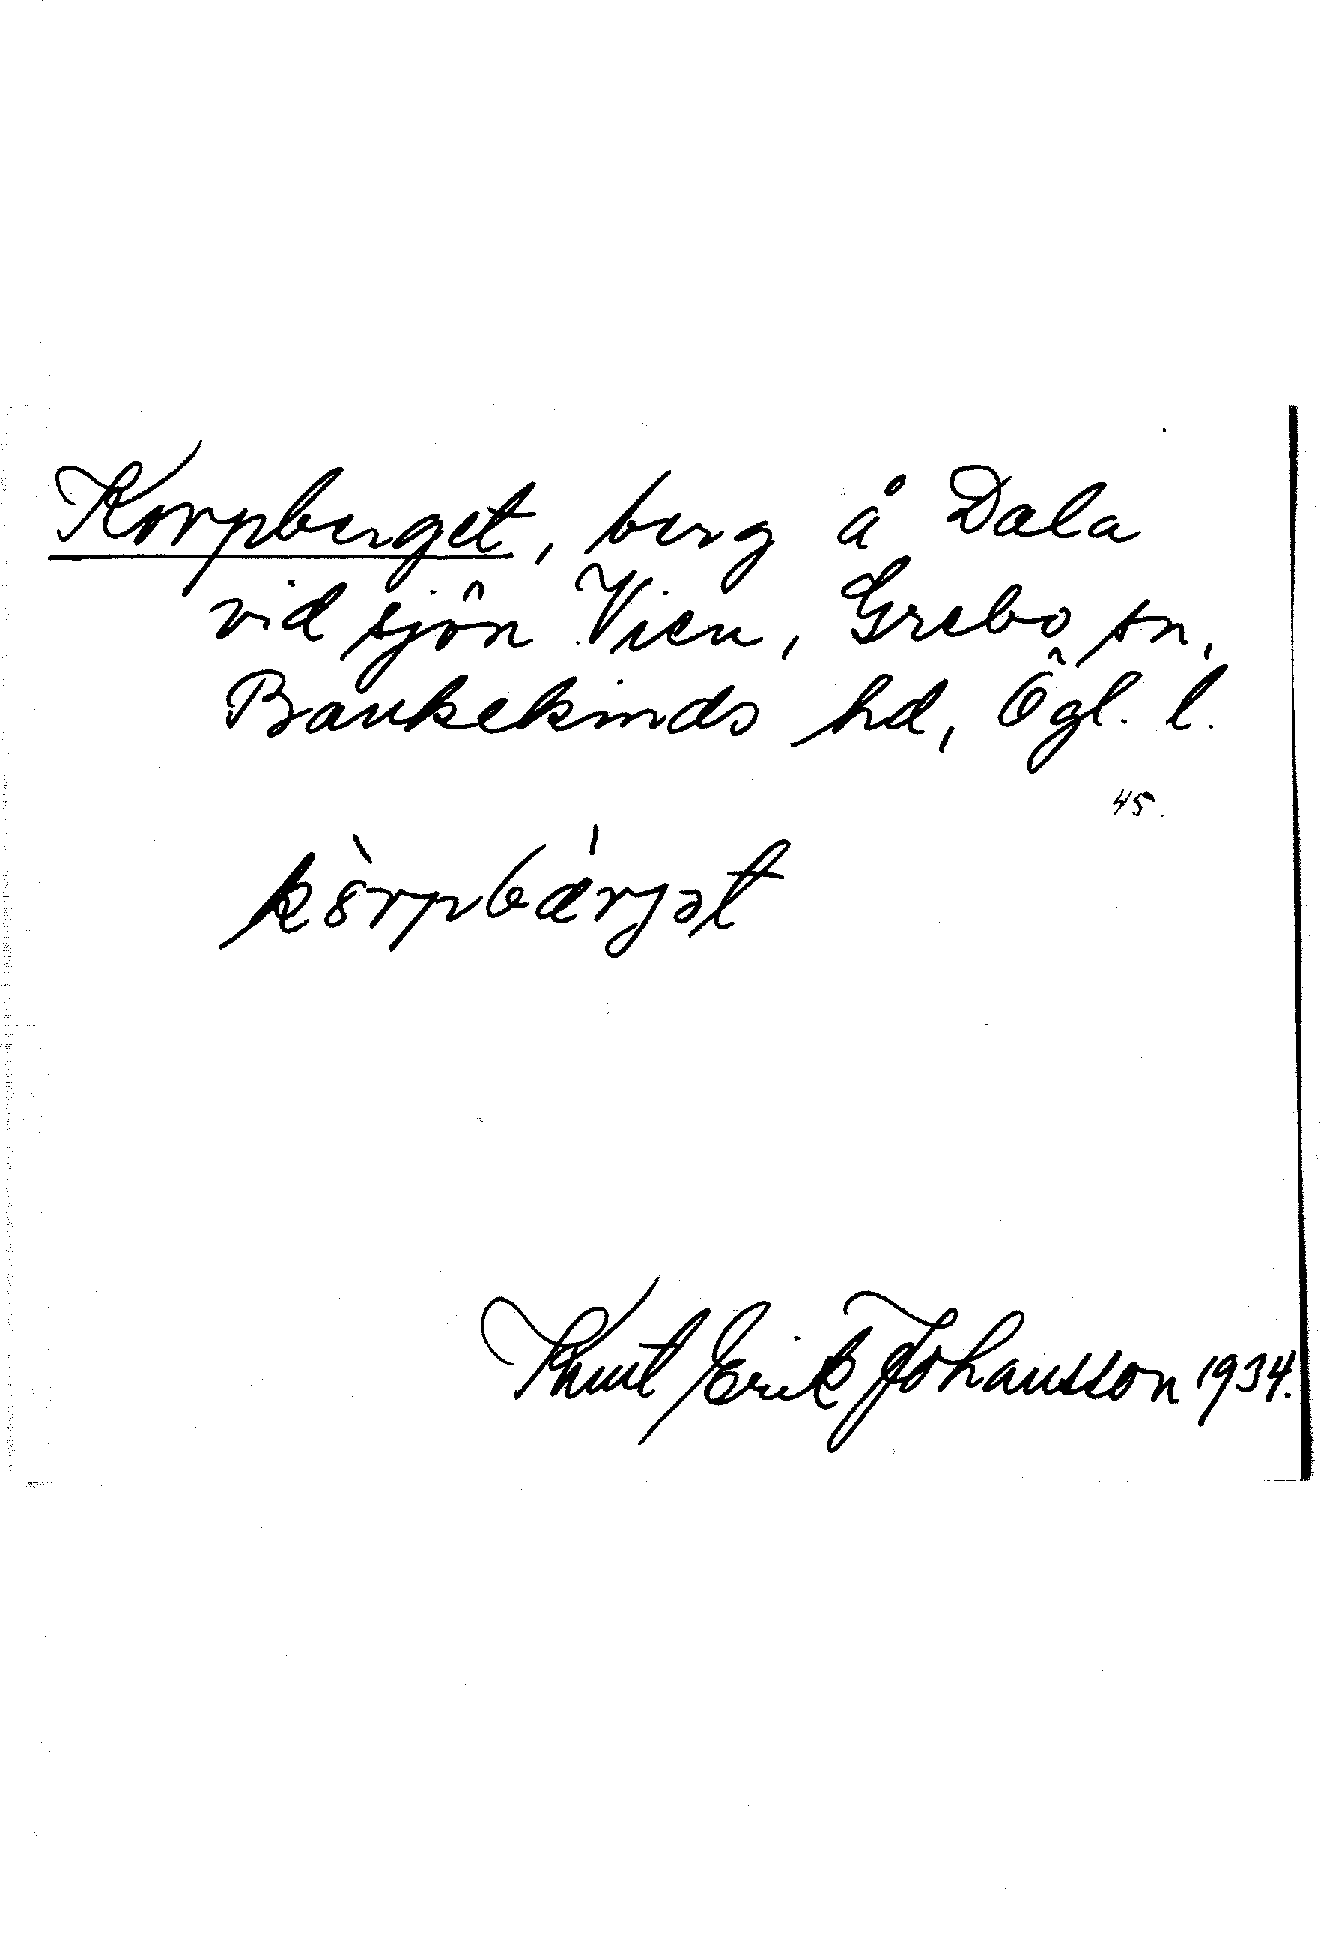 Korpberget, berg å Dala
vid sjön Vien, Grebo sn,
Bankekinds hd, Ögl. l.
45.
kòrpbä́rjət
Knut Erik Johansson 1934.